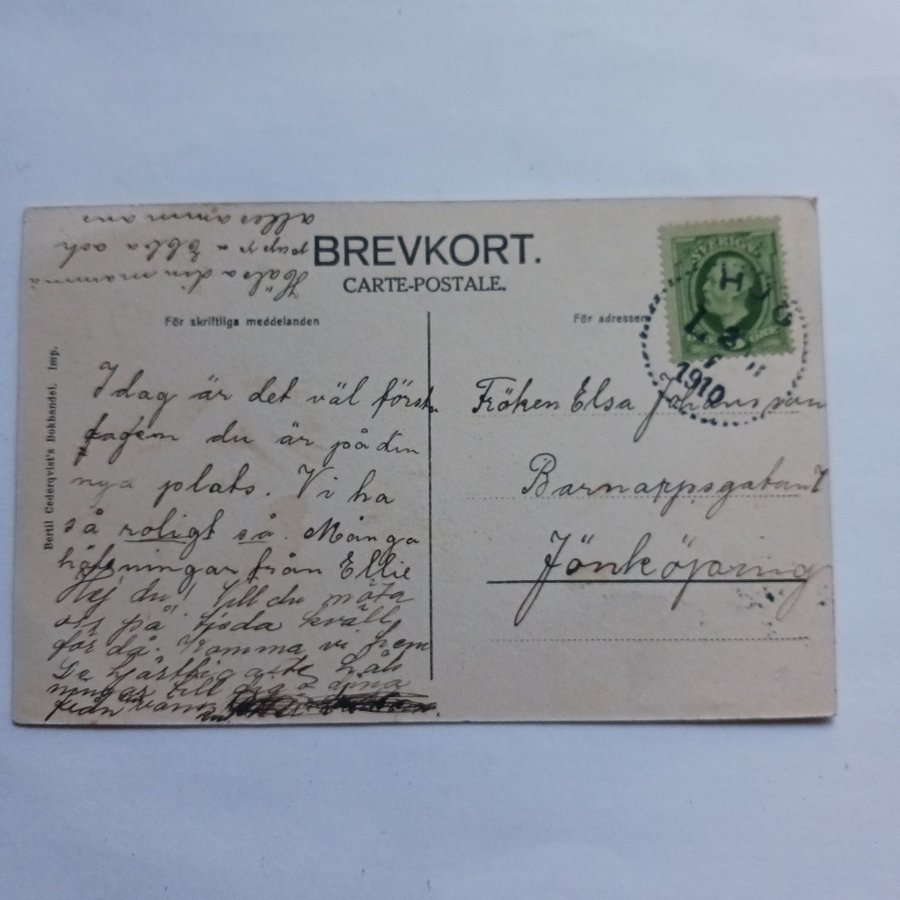 Hälsa din mamma
pappa Ebba och
allesammans
BREVKORT.
CARTE-POSTALE.
För skriftliga meddelanden
För adressen
SVERIGE
1910
Bertil Cederqvist's Bokhandel. Imp.
Idag är det väl första
dagen du är på din
nya plats. Vi ha
så roligt så. Många
hälsningar från Ellie
Hej du! Vill du möta
oss på tisda kväll
för då. Komma vi hem
De hjärtligaste häls
ningar till dig o dina
från
Fröken Elsa Johansson
Barnarpsgatan
Jönköping